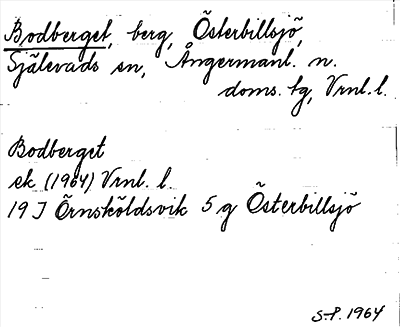 Bodberget, berg, Österbillsjö,
Själevads sn, Ångermanl. n.
doms. tg, Vrnl. l.
Bodberget
ek (1964) Vrnl. l.
19 J Örnsköldsvik 5 g Österbillsjö
S-P. 1964